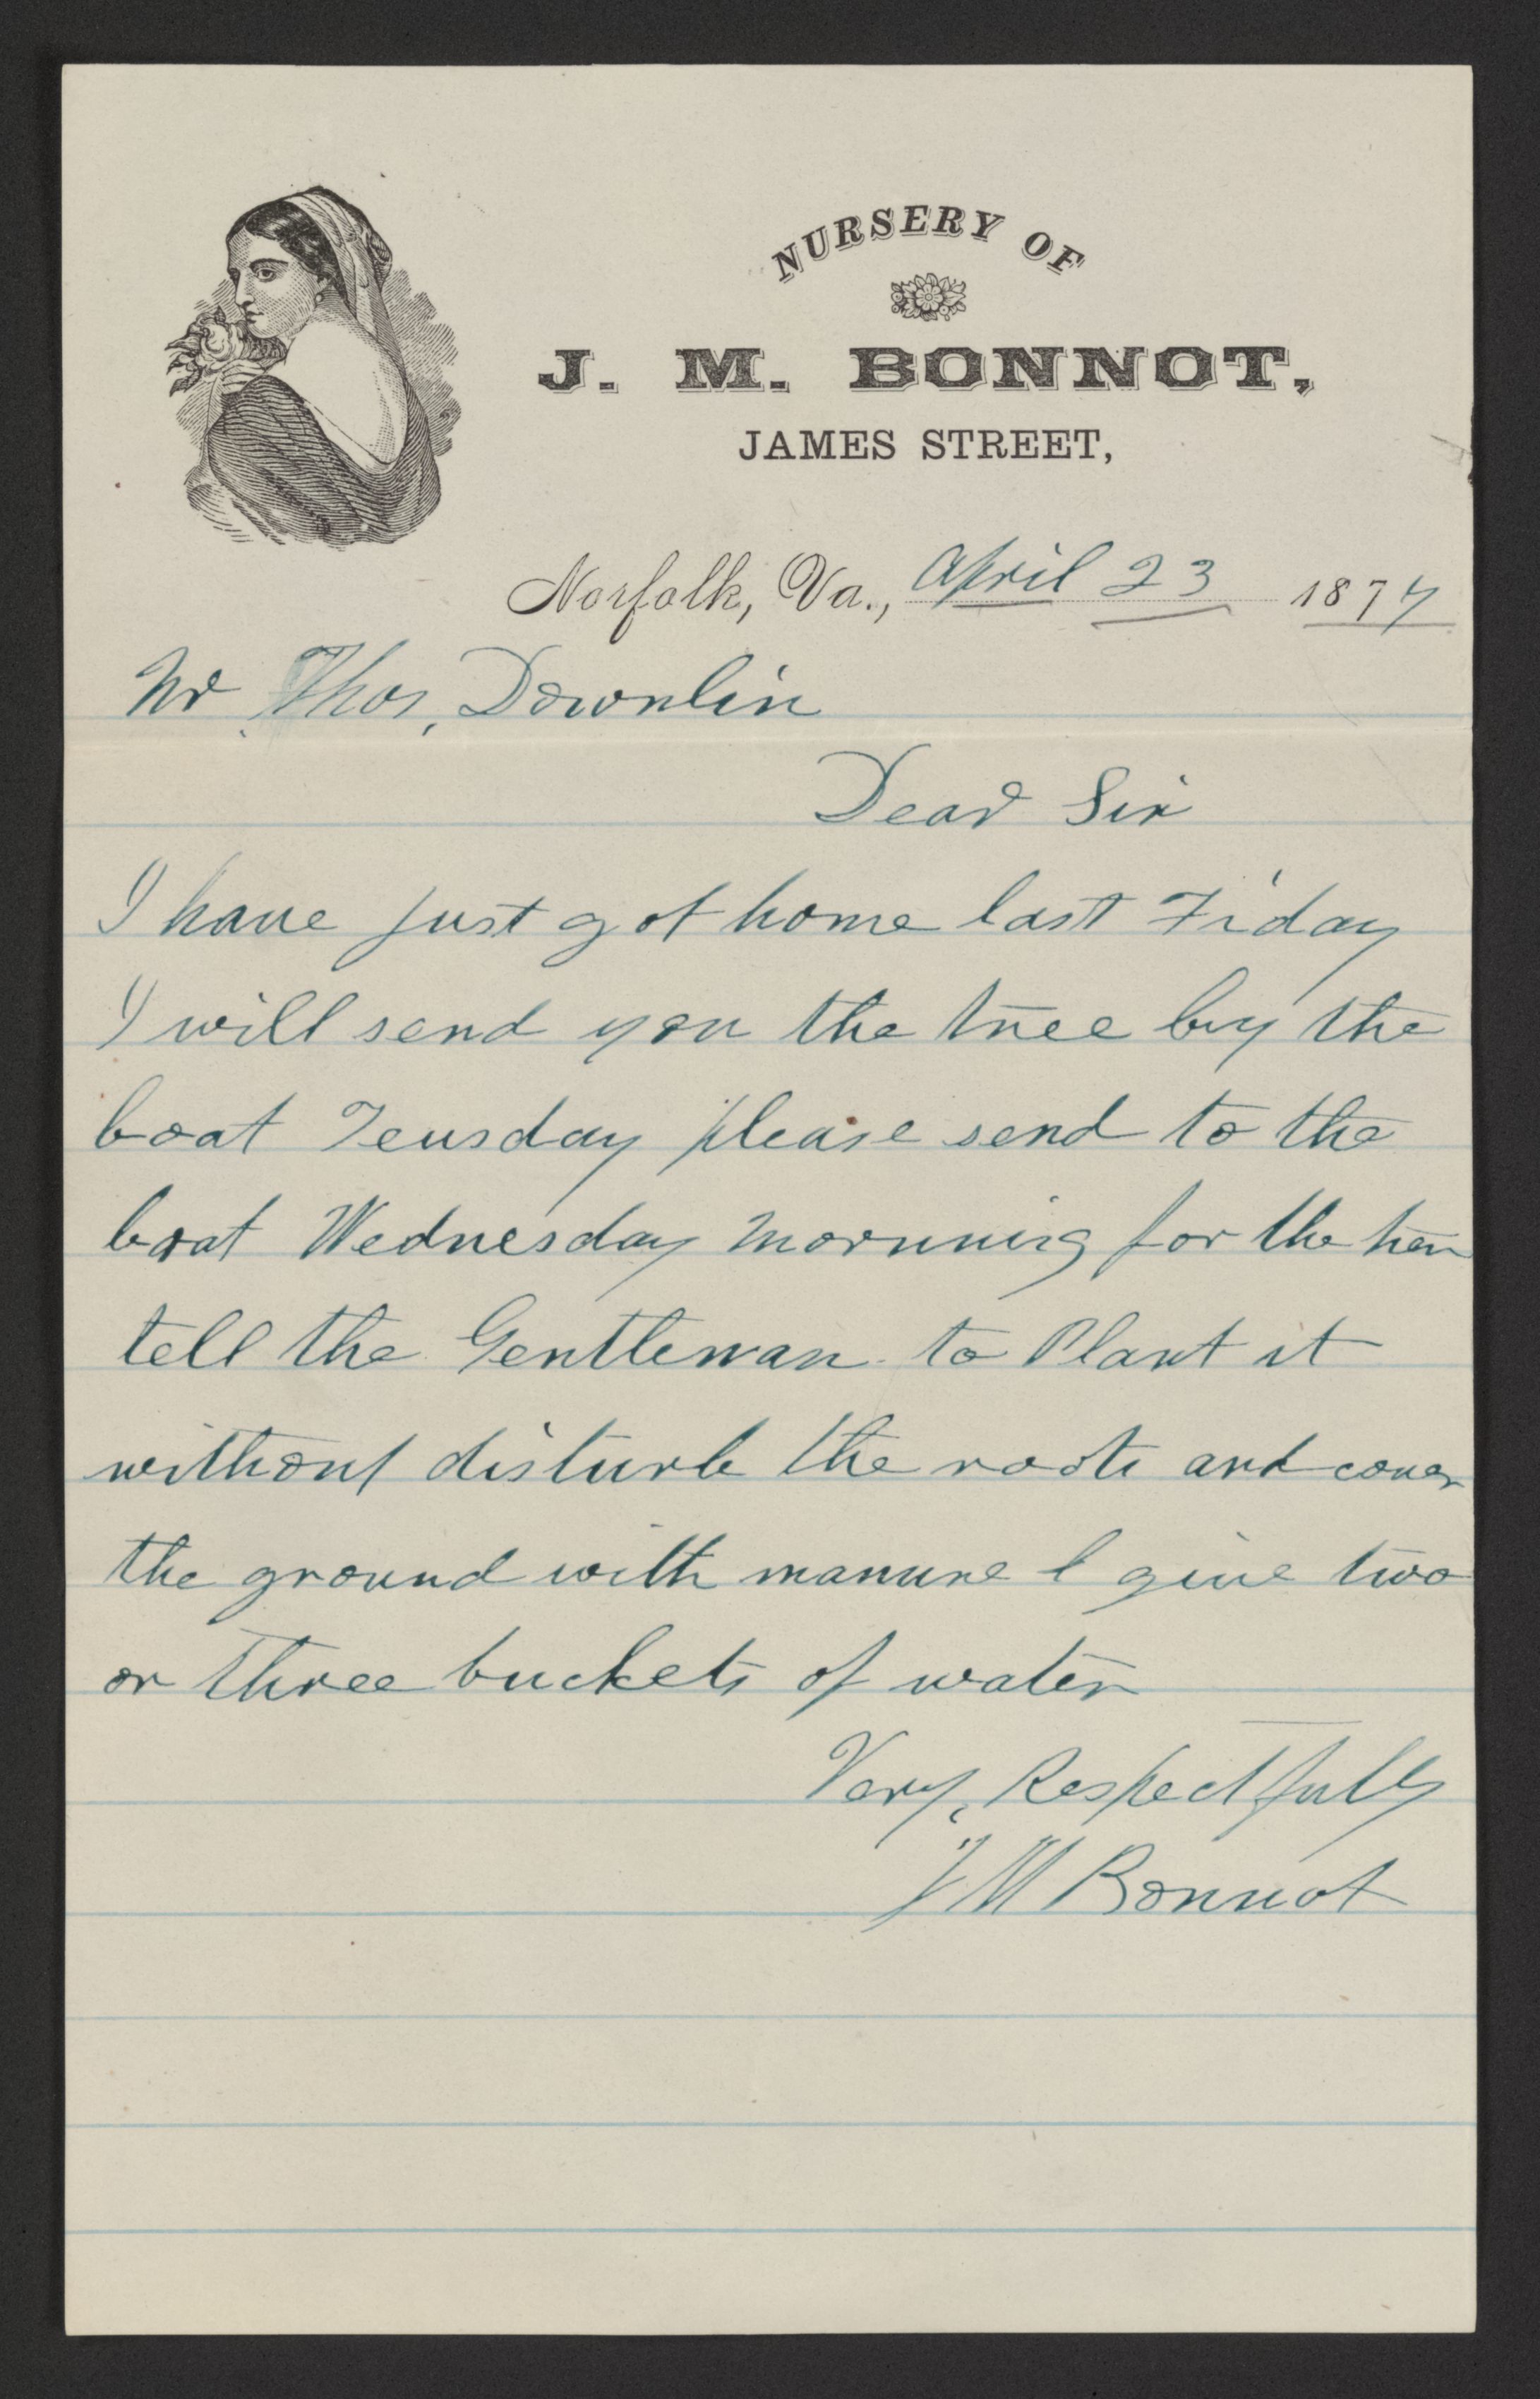 NURSERY OF
J. M. BONNOT,
JAMES STREET,
Norfolk, Va., April 23 1877
Mr Thos, Downlin
Dear Sir
I have just got home last Friday
I will send you the tree by the
boat Teusday please send to the
boat Wednesday Mornning for the
tell the Gentleman to Plant it
without disturb the roots and cover
the ground with manure & give two
or three buckets of water
Very, Respectfully
J M Bonnot